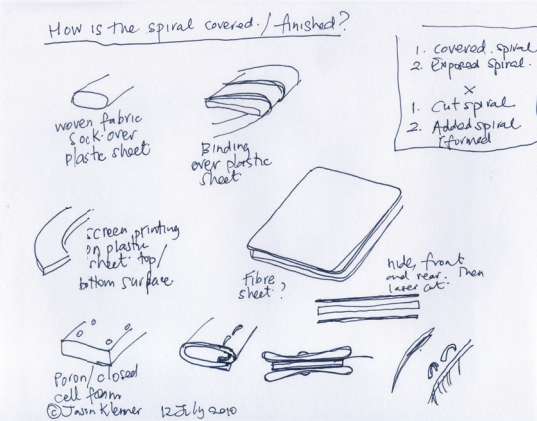 How is the spiral covered / finished?
1. Covered spiral
2. Exposed spiral.
x
1. Cut spiral
2. Added spiral
formed
woven fabric
sock over
plastic sheet
Binding
over plastic
sheet
screen printing
on plastic
sheet top/
bottom surface
Fibre
sheet?
hide, front
and rear. Then
laser cut.
Poron/closed
cell foam
© Jason Klenner 12 July 2010